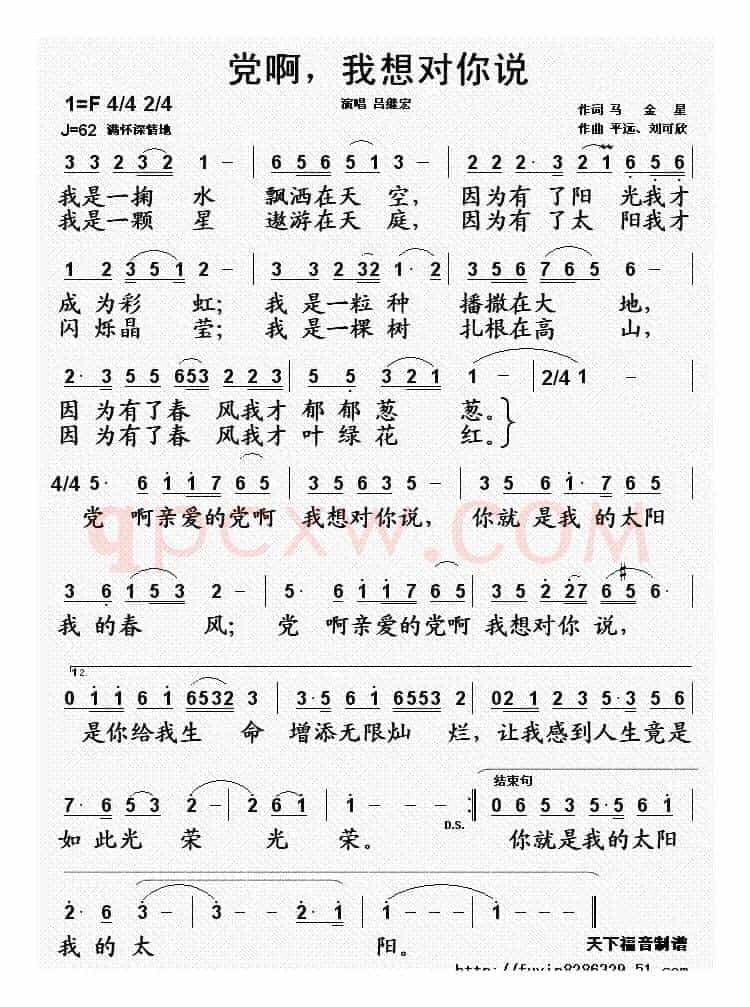 党啊，我想对你说
1=F 4/4 2/4
演唱 吕继宏
作词 马 金 星
J=62 满怀深情地
作曲 平远、刘可欣
3 3 2 3 2 1 – | 6 5 6 5 1 – | 2 2 2· 3 2 1 6 5 6
我是一掬 水 飘洒在天 空， 因为有 了阳 光我才
我是一颗 星 遨游在天 庭， 因为有 了太 阳我才
1 2 3 5 1 2 – | 3 3 2 3 2 1 · 2 | 3 5 6 7 6 5 6 –
成 为彩 虹； 我 是一粒 种 播撒在大 地，
闪 烁晶 莹； 我 是一棵 树 扎根在高 山，
2· 3 5 5 6 5 3 2 2 3 | 5 5· 3 2 1 | 1 – 2/4 1 – |
因 为有了春 风我才 郁 郁葱 葱。
因 为有了春 风我才 叶 绿花 红。
4/4 5· 6 1 1 7 6 5 | 3 5 6 3 5 – | 3 5 6 1 · 1 7 6 5
党 啊亲爱的党啊 我想对你说， 你就 是我 的太阳
qpcxw.COM
3 6 1 5 3 2 – | 5· 6 1 1 7 6 5 | 3 5 2 2 7 6 #5 6·
我 的春 风； 党 啊亲爱的党啊 我想对你 说，
12.
0 1 1 6 1 6 5 3 2 3 | 3· 5 6 1 6 5 5 3 2 | 0 2 1 2 3 5 5 6
是你给我生 命 增添无限灿 烂， 让我感到人生竟是
结束句
7· 6 5 3 2 – | 2 6 1 | 1 – 1 – :‖ 0 6 5 3 5· 5 6 1
D.S.
如 此光 荣 光 荣。 你就是我的太阳
2· 6 3 – | 3 – 2· 1 | 1 – – – | 1 – – – ‖
我 的 太 阳。
天下福音制谱
http://fuyin8286329.51.com